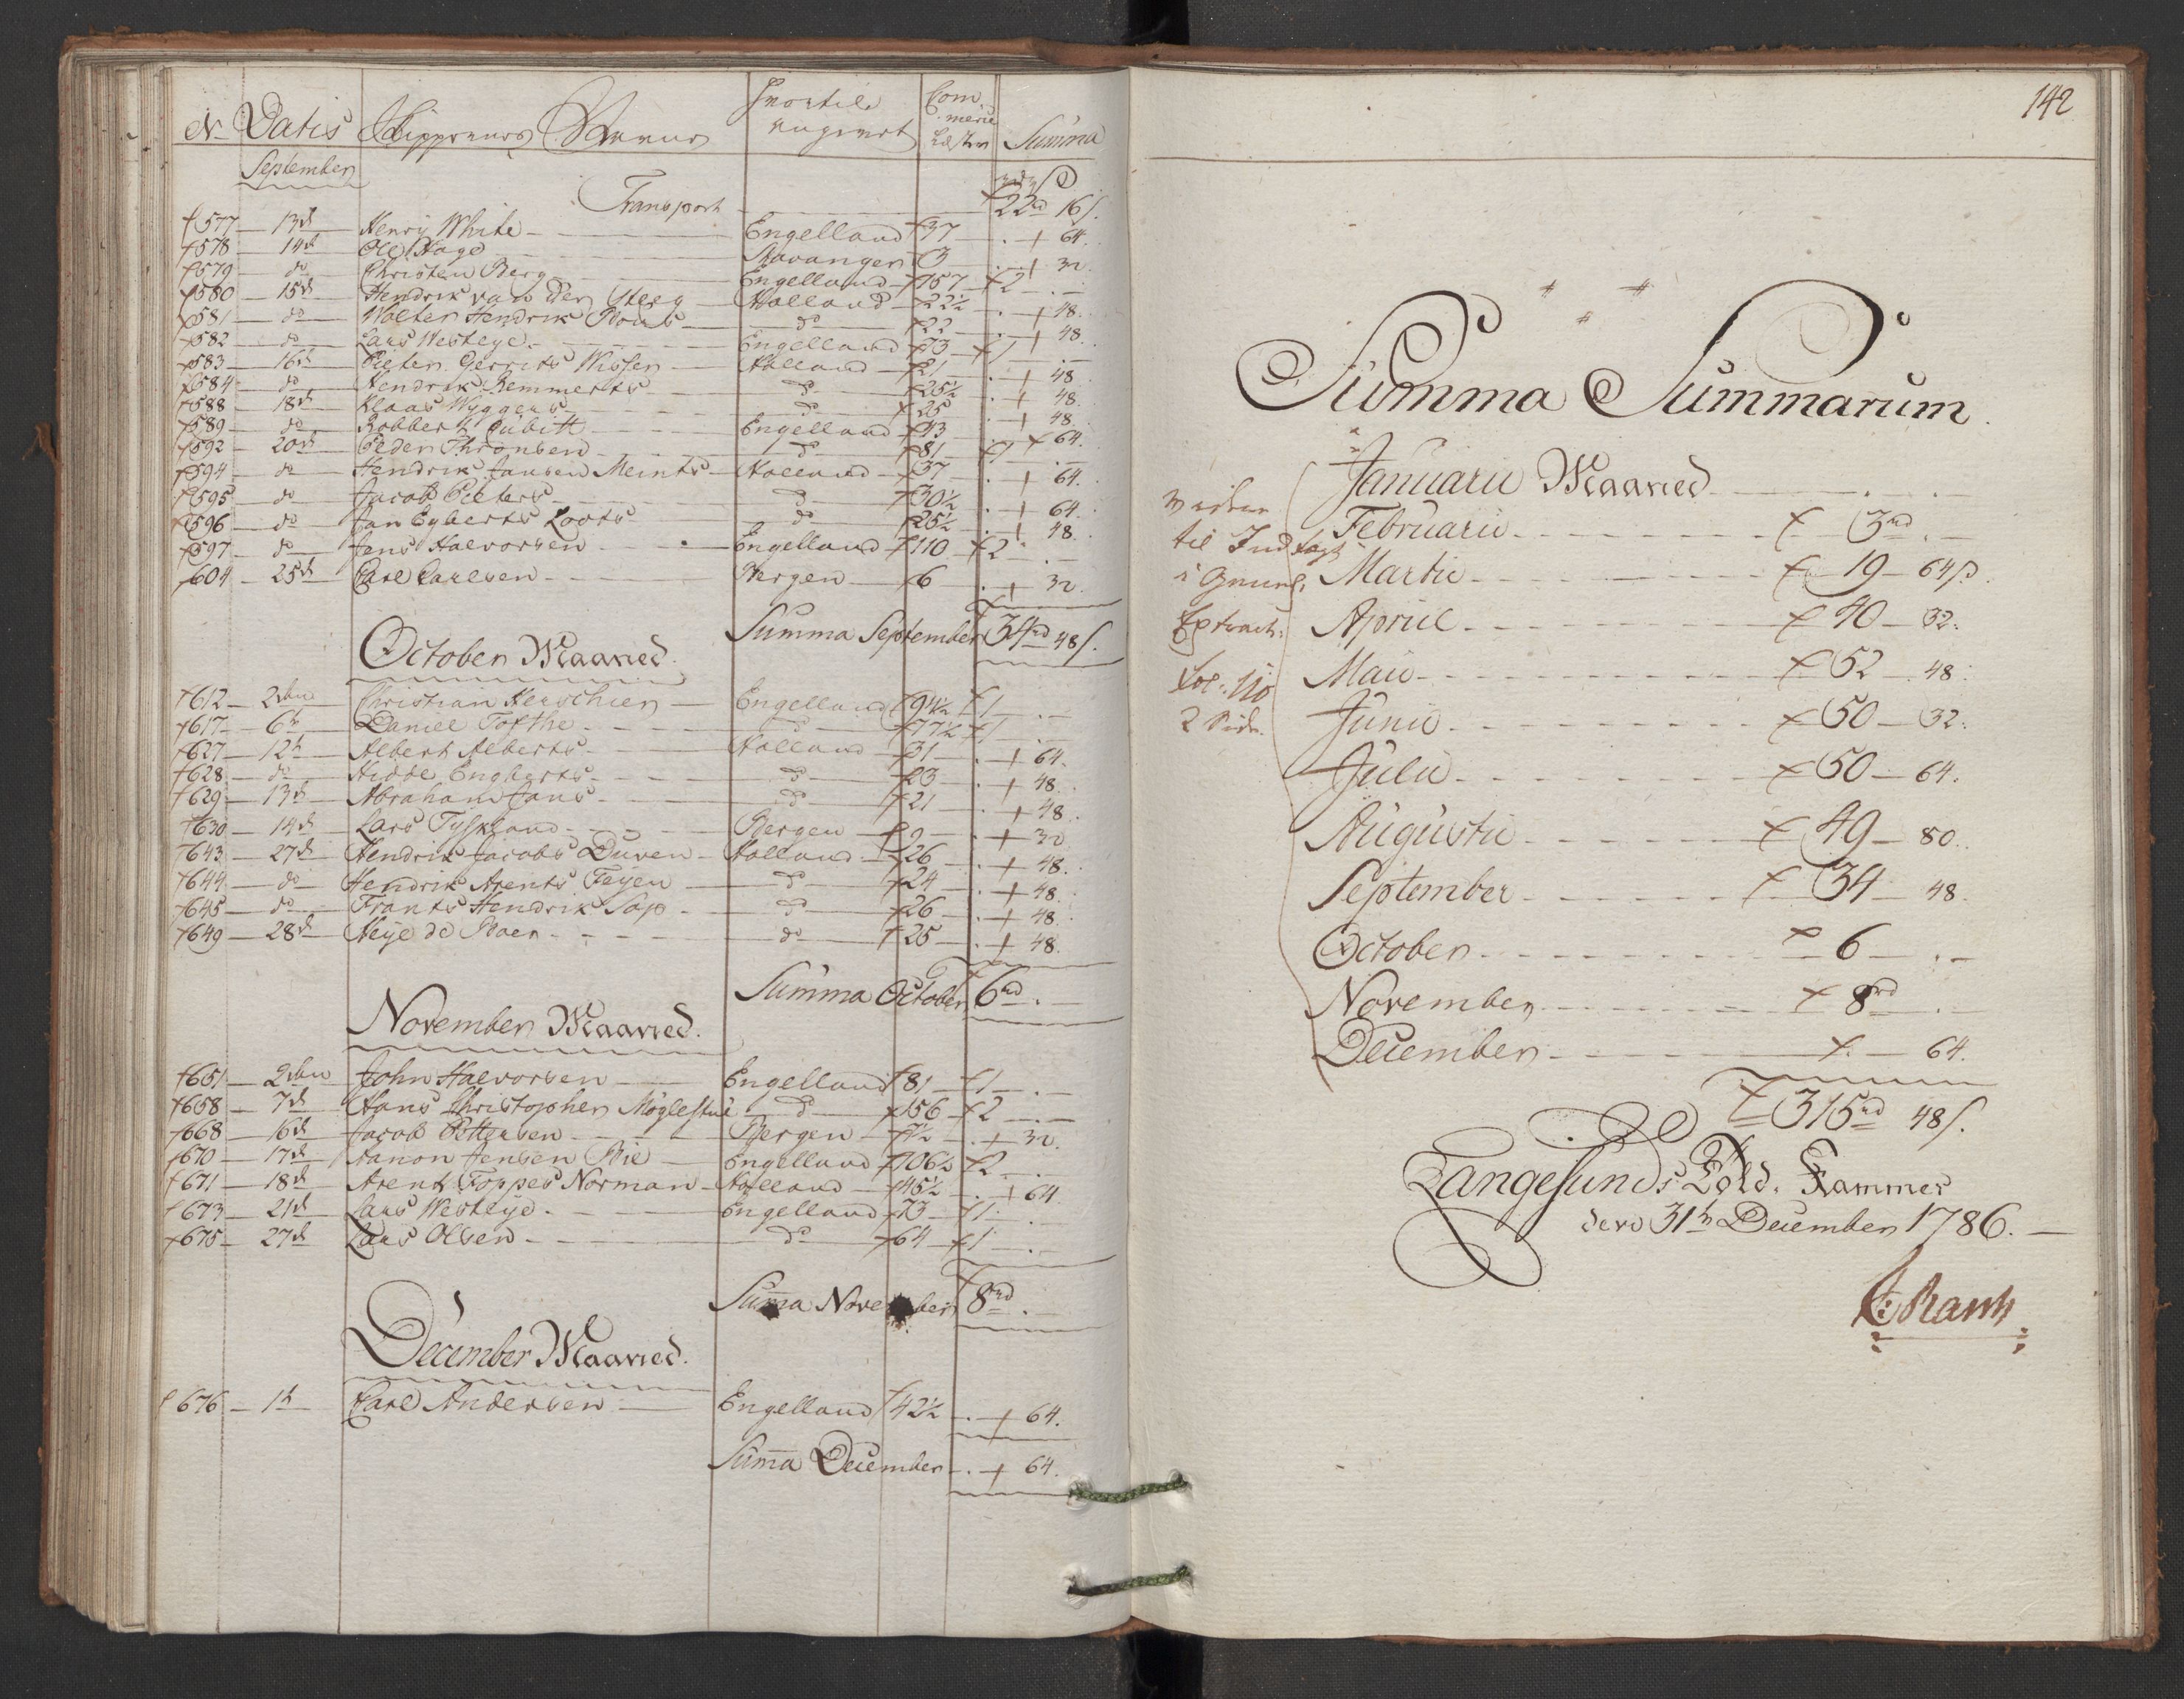 N. Datis Skippernes Navne Hvortil angivet Com merce Læster Summa
September
Transport 22rd 16s.
577 13d Henry White Engelland 37 . 64.
578 14d Ole Hage Stavanger 3 . 32.
579 do Christen Berg Engelland 157 2 . 
580 15d Hendrik van der Steeg Holland 22½ . 48.
581 do Wolter Hendrik do 22 . 48.
582 do Lars Westeye Engelland 73 1 .
583 16d Pieter Gerrits Wisser Holland 21 . 48
584 do Hendrik Remmerts do 25½ . 48.
588 18d Klaas Wyggers do 25 . 48
589 do Robbert Cubitt Engelland 43 . 64.
592 20d Peder Thronsen do 81 1 .
594 do Hendrik Jansen Meints Holland 37 . 64.
595 do Jacob Pieters do 30½ . 64.
596 do Jan Egberts Loots do 25½ . 48.
597 do Jens Halvorsen Engelland 110 2 .
604 25d Carl Carlsen Bergen 6 . 32.
Summa September 34rd 48s.
October Maaned.
612 2den Christian Herschier Engelland 94½ 1 .
617 6t Daniel Tofthe do 77½ 1 .
627 12t Albert Alberts Holland 31 . 64.
628 do Hidde Engberts do 23 . 48.
629 13d Abraham Jans do 21 . 48.
630 14d Lars Tyskland Bergen 2 . 32
643 27d Hendrik Jacobs Duven Holland 26 . 48.
644 do Hendrik Arents Feyen do 24 . 48.
645 do Frants Hendrik Sap do 26 . 48.
649 28d Heye de Boer do 25 . 48.
Summa October 6rd .
November Maaned.
651 2den John Halvorsen Engelland 81 1 .
658 7d Hans Christopher Møglestue do 156 2 .
668 16d Jacob Pettersen Bergen 7½ . 32.
670 17d Aanon Jensen Engelland 106½ 2 .
671 18d Arent Foppes Norman Holland 45½ . 64
673 21d Lars Westeye Engelland 73 1 .
675 27d Lars Olsen do 64 1 .
Summa November 8rd .
December Maaned.
676 1t Carl Andersen Engelland 42½ . 64.
Summa December . 64.
142
Summa Summarum.
Januarii Maaned . 
Februarii 3rd
Martii 19 64s.
April 40 32.
Maii 52 48.
Junii 50 32.
Julii 50 64.
Augustii 49 80.
September 34 48.
October 6 .
November 8rd .
December . 64.
315rd 48s.
videre
til Indtagt
i General
Extract.
Fol: 110
2 Side.
Langesunds Told Kammer
den 31t December 1786.